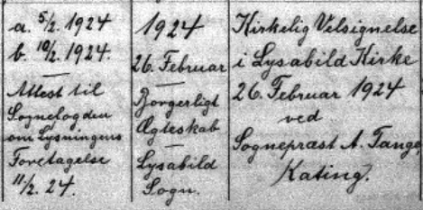 a. 5/2. 1924
b. 10/2. 1924.
Attest til
Sognefogden
om Lysningens
Foretagelse
11/2. 24.
1924
26. Februar
Borgerligt
Ægteskab
Lysabild
Sogn.
Kirkelig Velsignelse
i Lysabild Kirke
26. Februar 1924
ved
Sognepræst A. Tange
Kating.